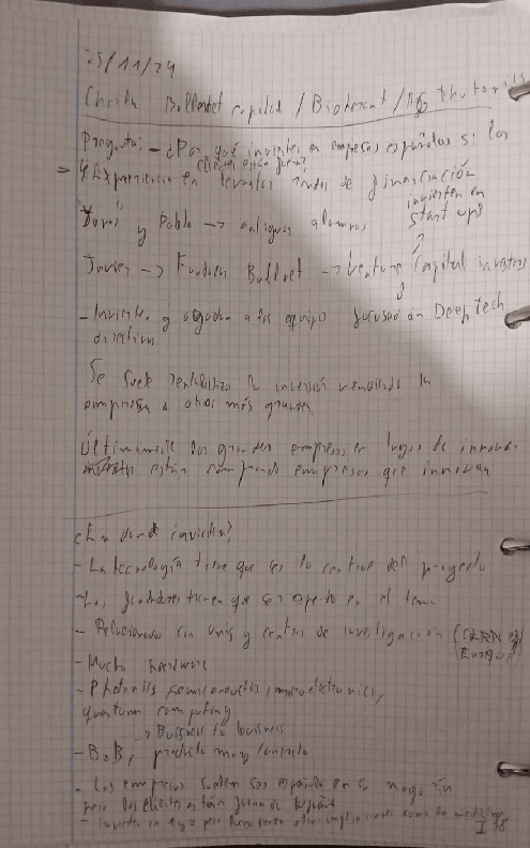 25/11/24
Charla Bullnet capital / / Photonics
Pregunta: - ¿Por qué invierten en empresas españolas si los
clientes están fuera?
⇒ Experiencia en levantar rondas de financiación
invierten en
y Pablo → antiguos alumnos start ups
Javier → Bullnet → Venture Capital investors
- Invierten y ayudan a los equipos focused on Deep Tech
directivos
Se suele rentabilizar la inversión vendiendo la
empresa a otras más grandes
Últimamente las grandes empresas en lugar de innovar
están comprando empresas que innovan
¿En donde invierten?
- La tecnología tiene que ser lo central del proyecto
- Los fundadores tienen que ser experto en el tema
- Relacionado con unis y centros de investigación (CERN
- Mucho hardware
- Photonics, semiconductors, microelectronics,
quantum computing
→ Business to business
- B2B, producto muy concreto
- Las empresas suelen ser española en su mayoría
pero los clientes están fuera de España
- como de medicina
I 38